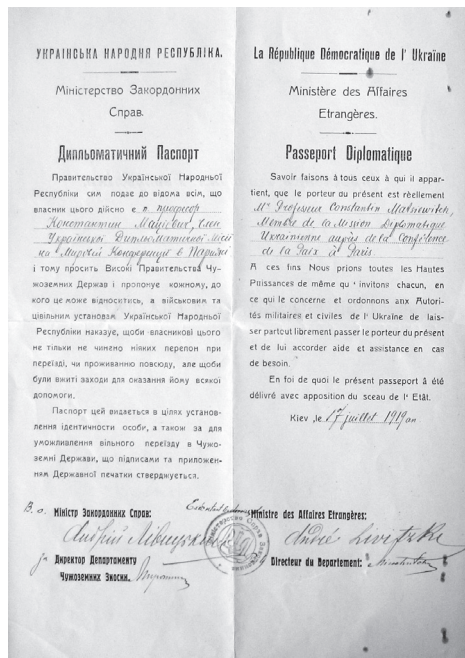 УКРАЇНСЬКА НАРОДНЯ РЕСПУБЛІКА.
Міністерство Закордонних
Справ.
Дипльоматичний Паспорт
Правительство Української Народньої
Республіки сим подає до відома всім, що
власник цього дійсно є п. професор
Константин Мацієвич, член
Української Дипльоматичної Місії
на Мировій Конференції в Парижі
і тому просить Високі Правительства Чу-
жоземних Держав і пропонує кожному, до
кого це може відноситись, а військовим та
цівільним установам Української Народньої
Республіки наказує, щоби власникові цього
не тільки не чинено ніяких перепон при
переїзді, чи проживанню повсюду, але щоби
були вжиті заходи для оказання йому всякої
допомоги.
Паспорт цей видається в цілях установ-
лення ідентичности особи, а також за для
уможливлення вільного переїзду в Чужо-
земні Держави, що підписами та приложен-
ням Державної печатки стверджується.
В. о. Міністр Закордонних Справ:
Андрій Лівицький
Директор Департаменту
Чужоземних Зносин.
La République Démocratique de l' Ukraïne
Ministère des Affaires
Etrangères.
Passeport Diplomatique
Savoir faisons à tous ceux à qui il appar-
tient, que le porteur du présent est réellement
Mr Professeur Constantin Matsievitch,
Membre de la Mission Diplomatique
Ukrainienne auprès de la Conférence
de la Paix à Paris
A ces fins Nous prions toutes les Hautes
Puissances de même qu' invitons chacun, en
ce qui le concerne et ordonnons aux Autori-
tés militaires et civiles de l' Ukraïne de lais-
ser partout librement passer le porteur du présent
et de lui accorder aide et assistance en cas
de besoin.
En foi de quoi le présent passeport à été
délivré avec apposition du sceau de l' Etât.
Kiev, le 17 juillet 1919 an
Ministre des Affaires Etrangères:
André Livitzki
Directeur du Departement: